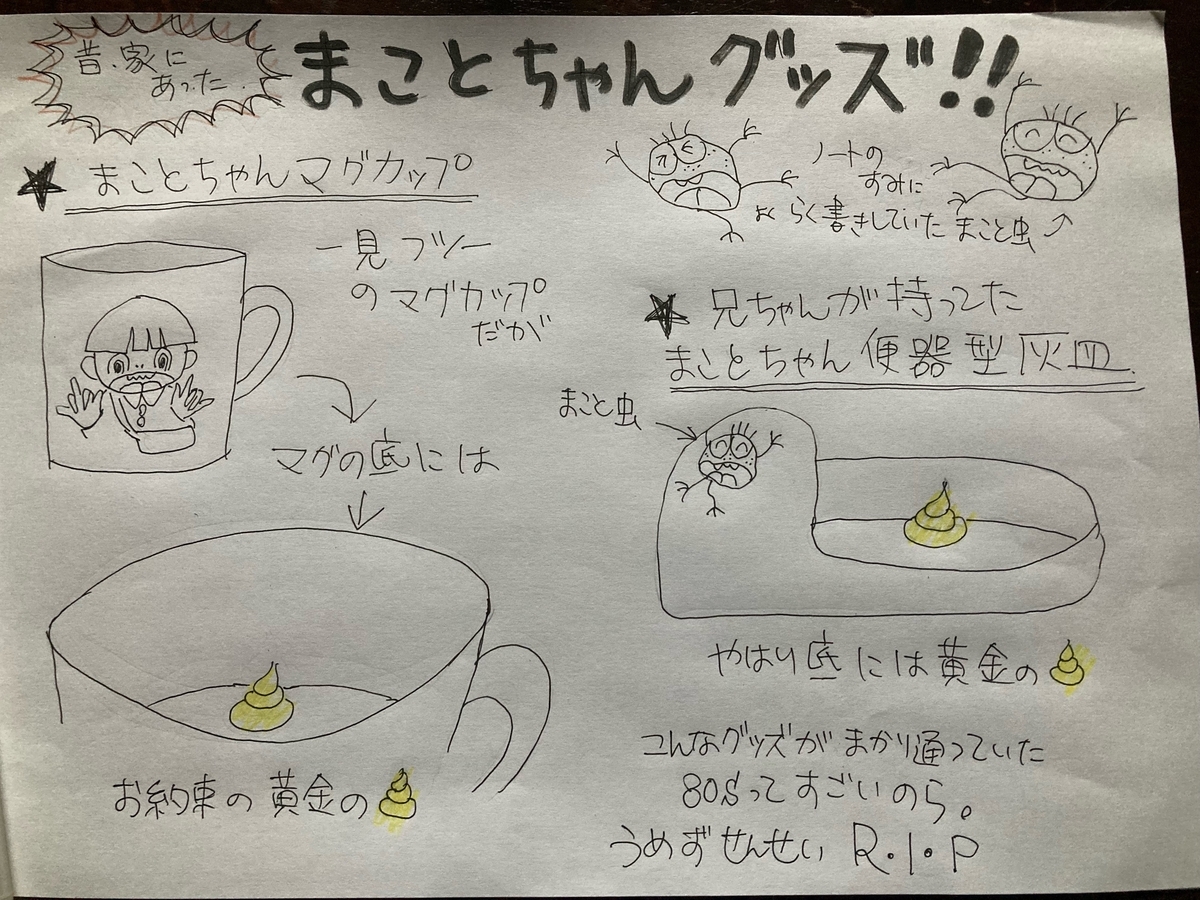 昔、家に
あった
まことちゃんグッズ!!
★ まことちゃんマグカップ
一見フツー
のマグカップ
だが
マグの底には
お約束の黄金の
ノートの
すみに
よくらく書きしていたまこと虫
★ 兄ちゃんが持ってた
まことちゃん便器型灰皿
まこと虫
やはり底には黄金の
こんなグッズがまかり通っていた
80sってすごいのら。
うめずせんせい R.I.P